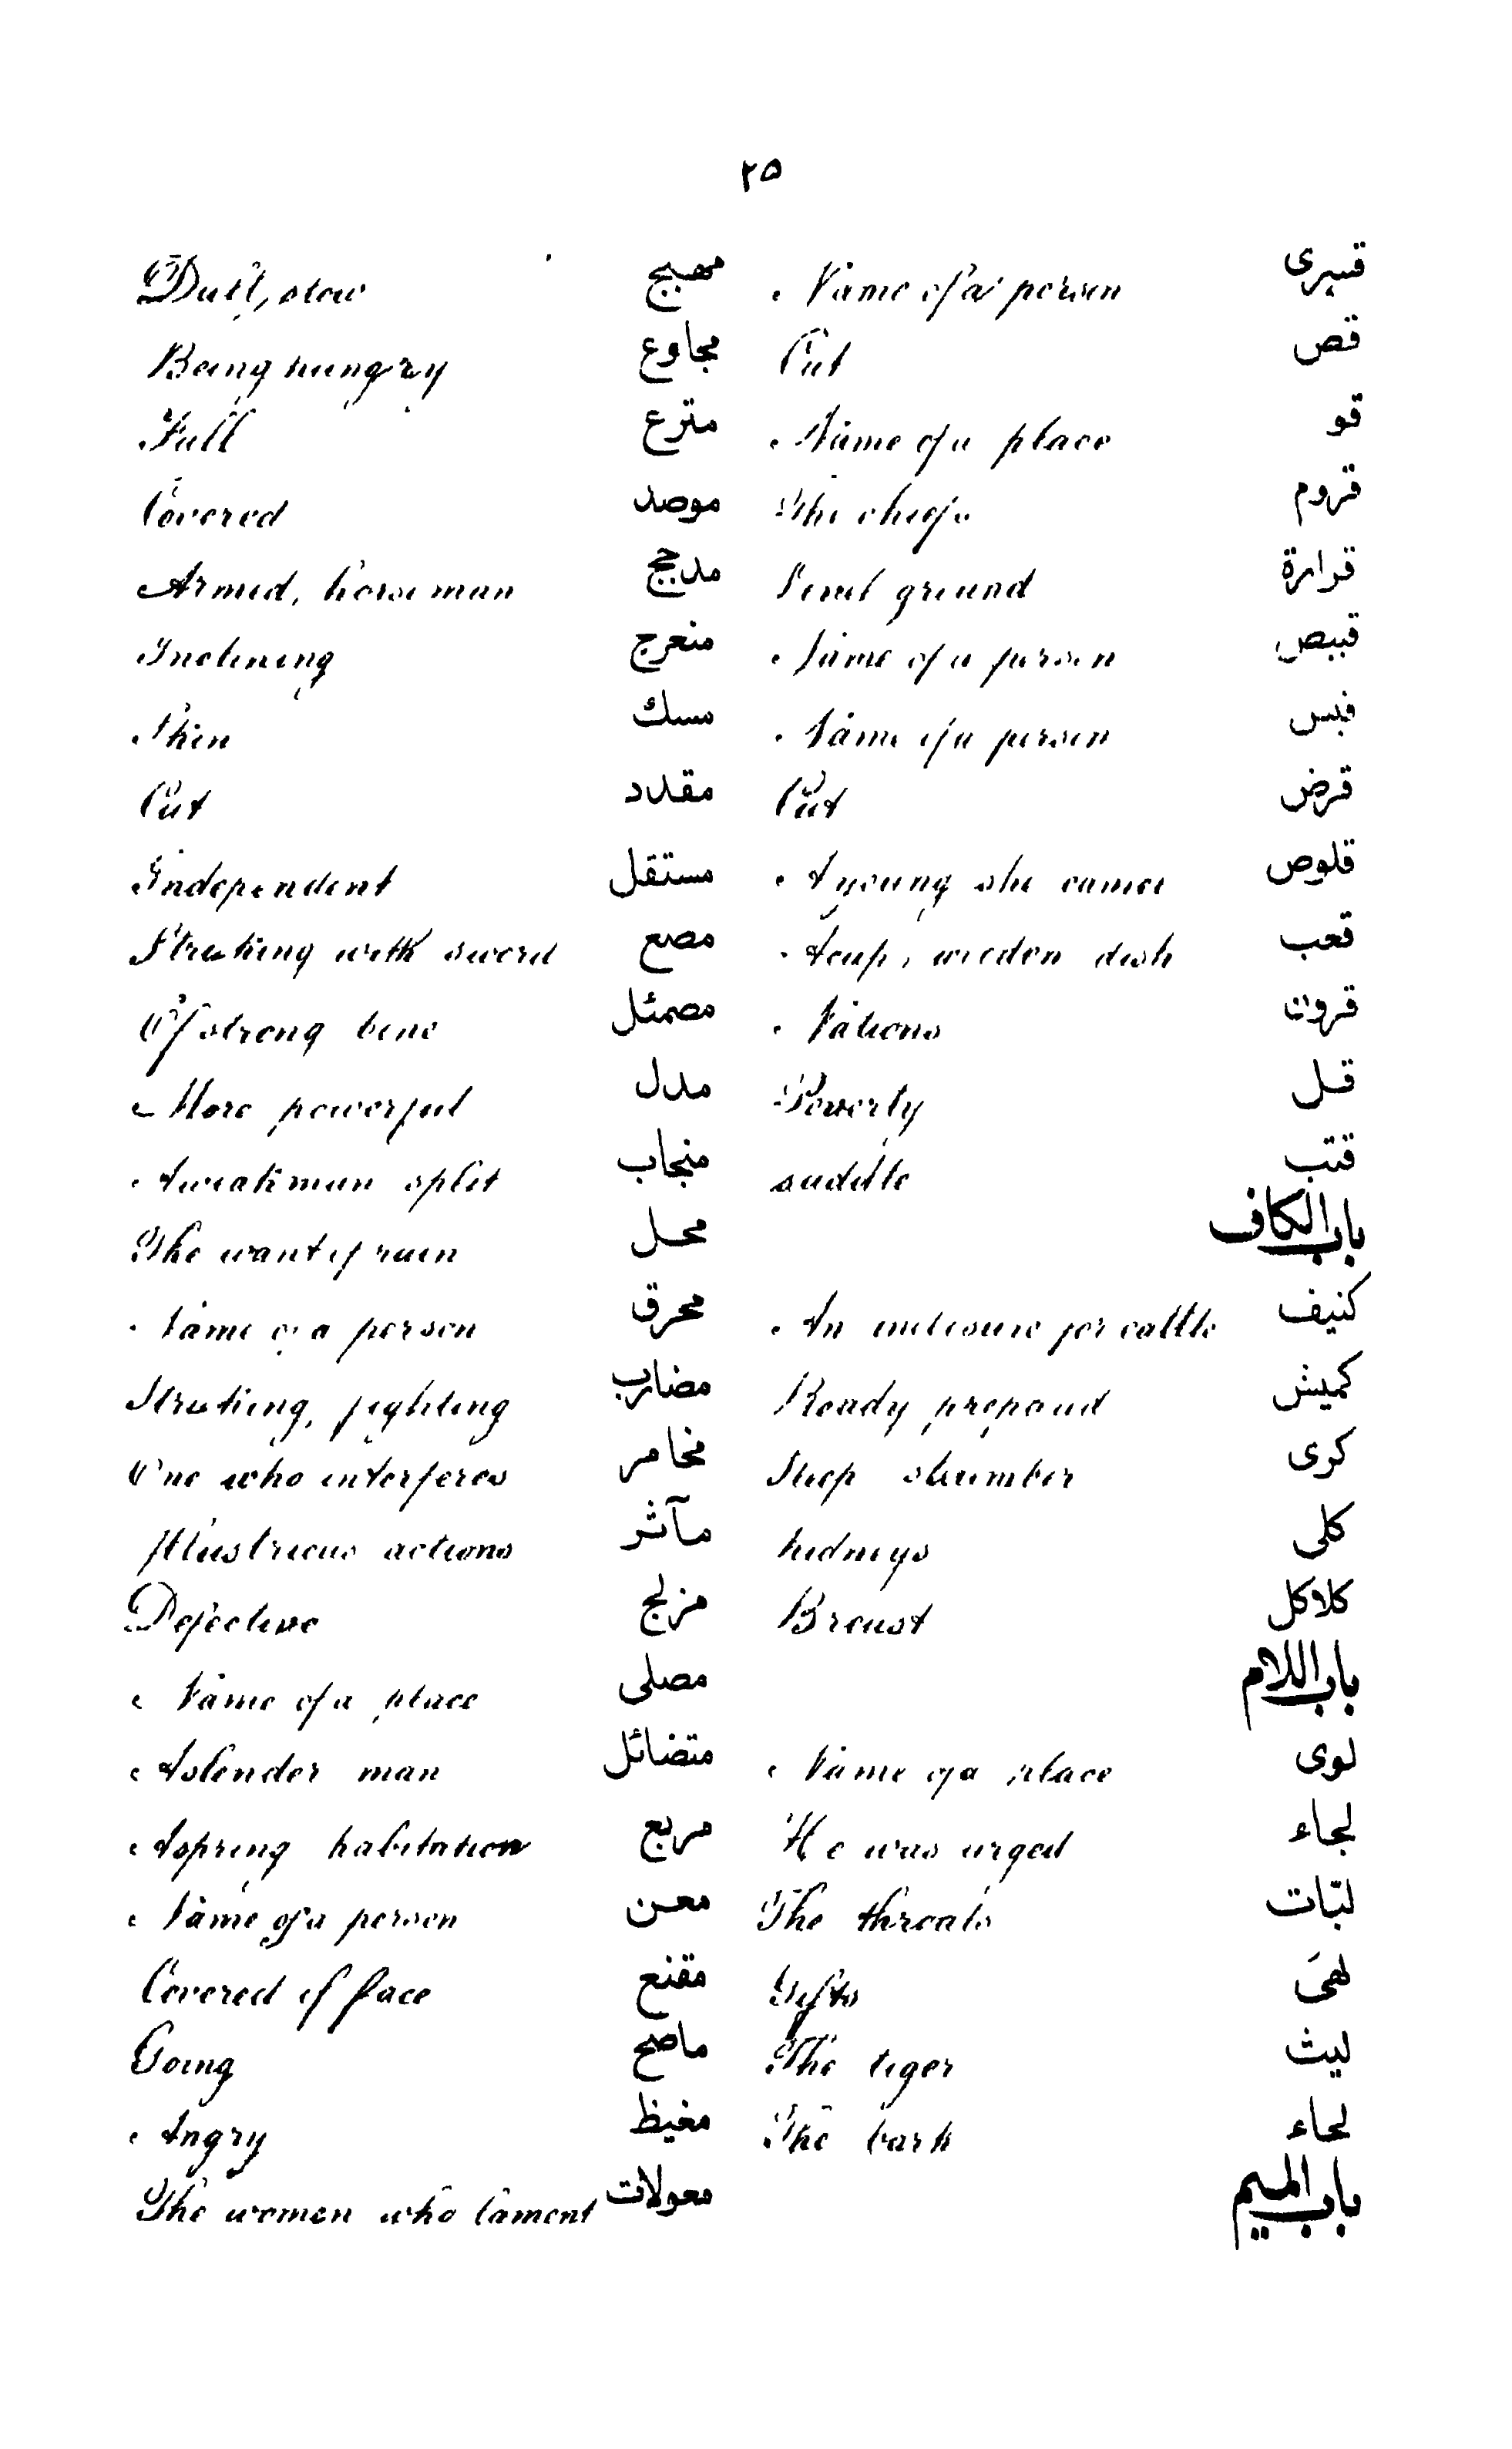 ٢٥
قسيرى Name of a person
قص Cut
قو Name of a place
قروم The chiefs
قرارة ground
قبيص Name of a person
قبس Name of a person
قرض Cut
قلوص A young she camel
قعب A cup, wooden dish
قرون Nations
قل Poverty
قتب saddle
باب الكاف
كنيف An inclosure for cattle
كميش Ready prepared
كرى Sleep slumber
كلى kidneys
كلاكل Breast
باب اللام
لوى Name of a place
لجاء He was urged
لبّات The throats
لهىَ Gifts
ليث The tiger
لحاء The bark
باب الميم
مهبج Dull, slow
مجاوع Being hungry
مترع Full
موصد Covered
مدجج Armed, horseman
منعرج Inclining
مسك Skin
مقدد Cut
مستقل Independent
مصع Struking with sword
مصمئل Of strong bone
مدل More powerful
منجاب A weak man split
محل The want of rain
محرق Name of a person
مضارب Struking, fighting
مخامر One who interferes
مآثر Illustrious actions
مزلج Defective
مصلى Name of a place
متضائل A slender man
مربع A spring habitation
معن Name of a person
مقنع Covered of face
ماصح Going
مغيظ Angry
معولات The women who lament